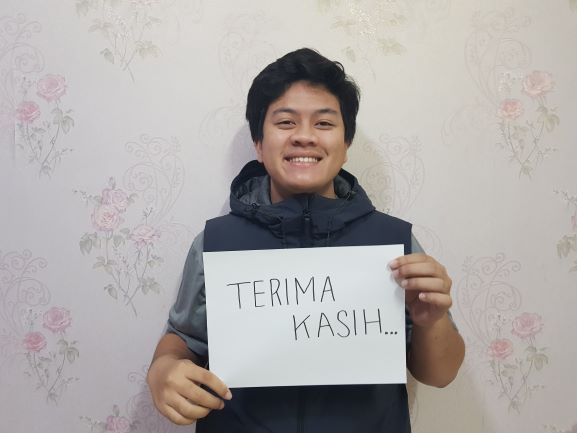 TERIMA
KASIH...